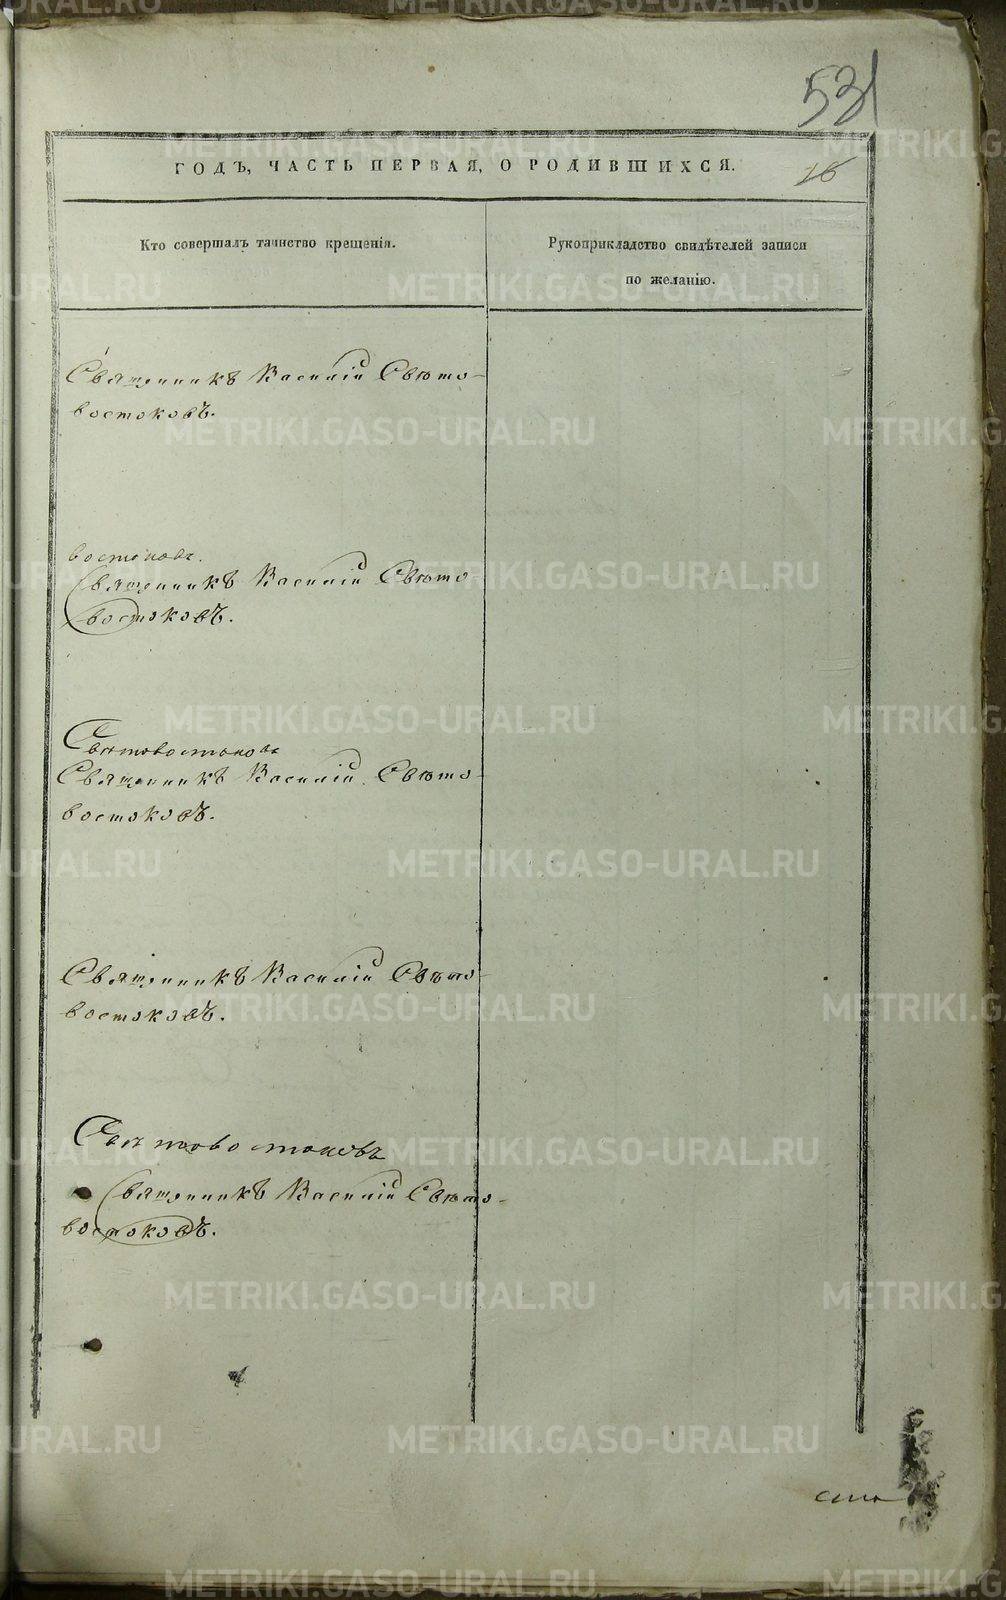 53
ГОДЪ, ЧАСТЬ ПЕРВАЯ, О РОДИВШИХСЯ.
16
Кто совершалъ таинство крещенія.
Рукоприкладство свидѣтелей записи
по желанію.
Священникъ Василій Свѣто-
востоковъ.
востоковъ.
Священникъ Василій Свѣто-
востоковъ.
Святовостоковъ
Священникъ Василій Свѣто-
востоковъ.
Священникъ Василій Свѣто-
востоковъ.
Святовостоковъ
Священникъ Василій Свѣто-
востоковъ.
METRIKI.GASO-URAL.RU